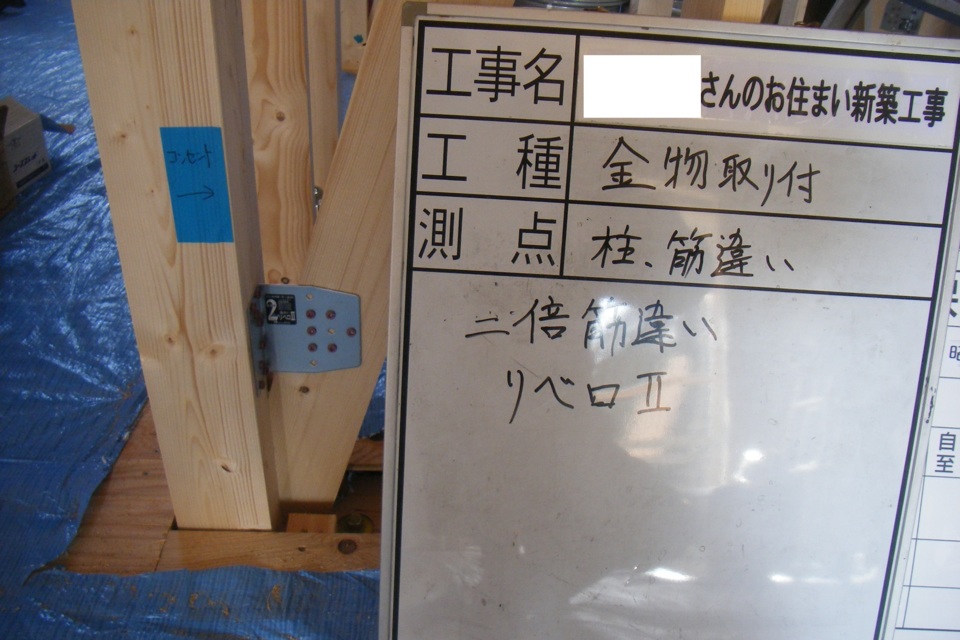 工事名 さんのお住まい新築工事
工種 金物取り付
測点 柱、筋違い
二倍筋違い
リベロⅡ
コンセント
→
2
自
至